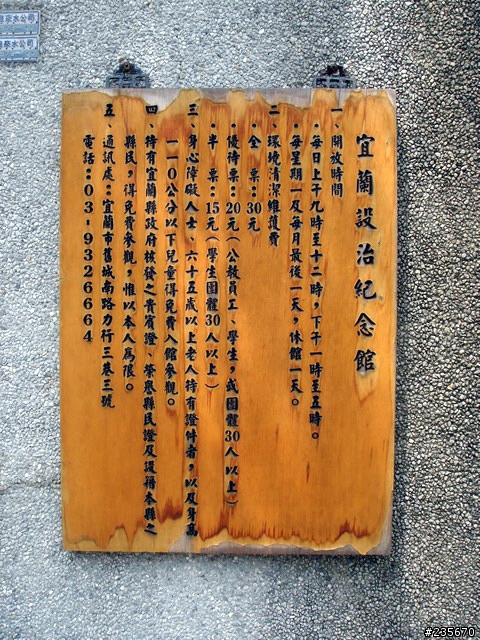 宜蘭設治紀念館
一、開放時間
．每日上午九時至十二時，下午一時至五時。
．每星期一及每月最後一天，休館一天。
二、環境清潔維護費
．全　票：30元
．優待票：20元（公教員工、學生，或團體30人以上）
．半　票：15元（學生團體30人以上）
三、身心障礙人士、六十五歲以上老人持有證件者，以及身高
一一０公分以下兒童得免費入館參觀。
四、持有宜蘭縣政府核發之貴賓證、榮譽縣民證及設籍本縣之
縣民，得免費參觀，惟以本人為限。
五、通訊處：宜蘭市舊城南路力行三巷三號
電話：03-9326664
#235670